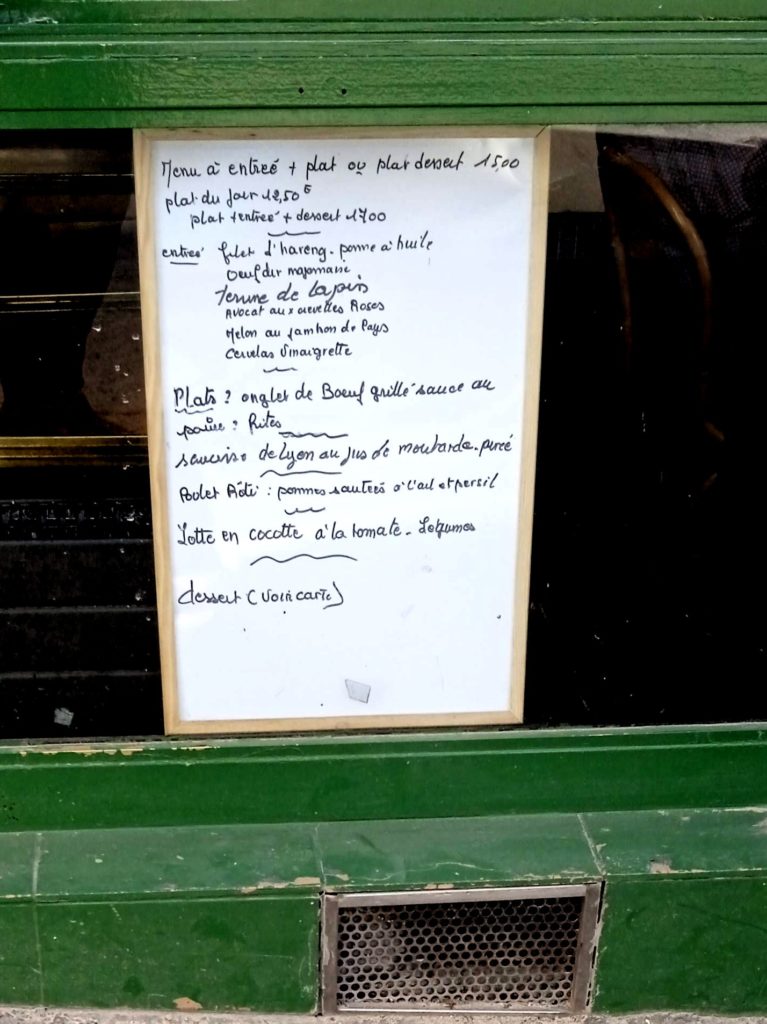 Menu à entrée + plat ou plat dessert 15,00
plat du jour 12,50€
plat + entrée + dessert 1700
entrée filet d'hareng. pomme à huile
Oeuf dur mayonnaise
Terrine de lapin
Avocat aux crevettes Roses
Melon au jambon de Pays
Cervelas Vinaigrette
Plats : onglet de Boeuf grillé sauce au
poivre : frites
saucisse de Lyon au jus de moutarde. purée
Poulet Rôti : pommes sautées à l'ail et persil
Lotte en cocotte à la tomate. Légumes
dessert (voir carte)